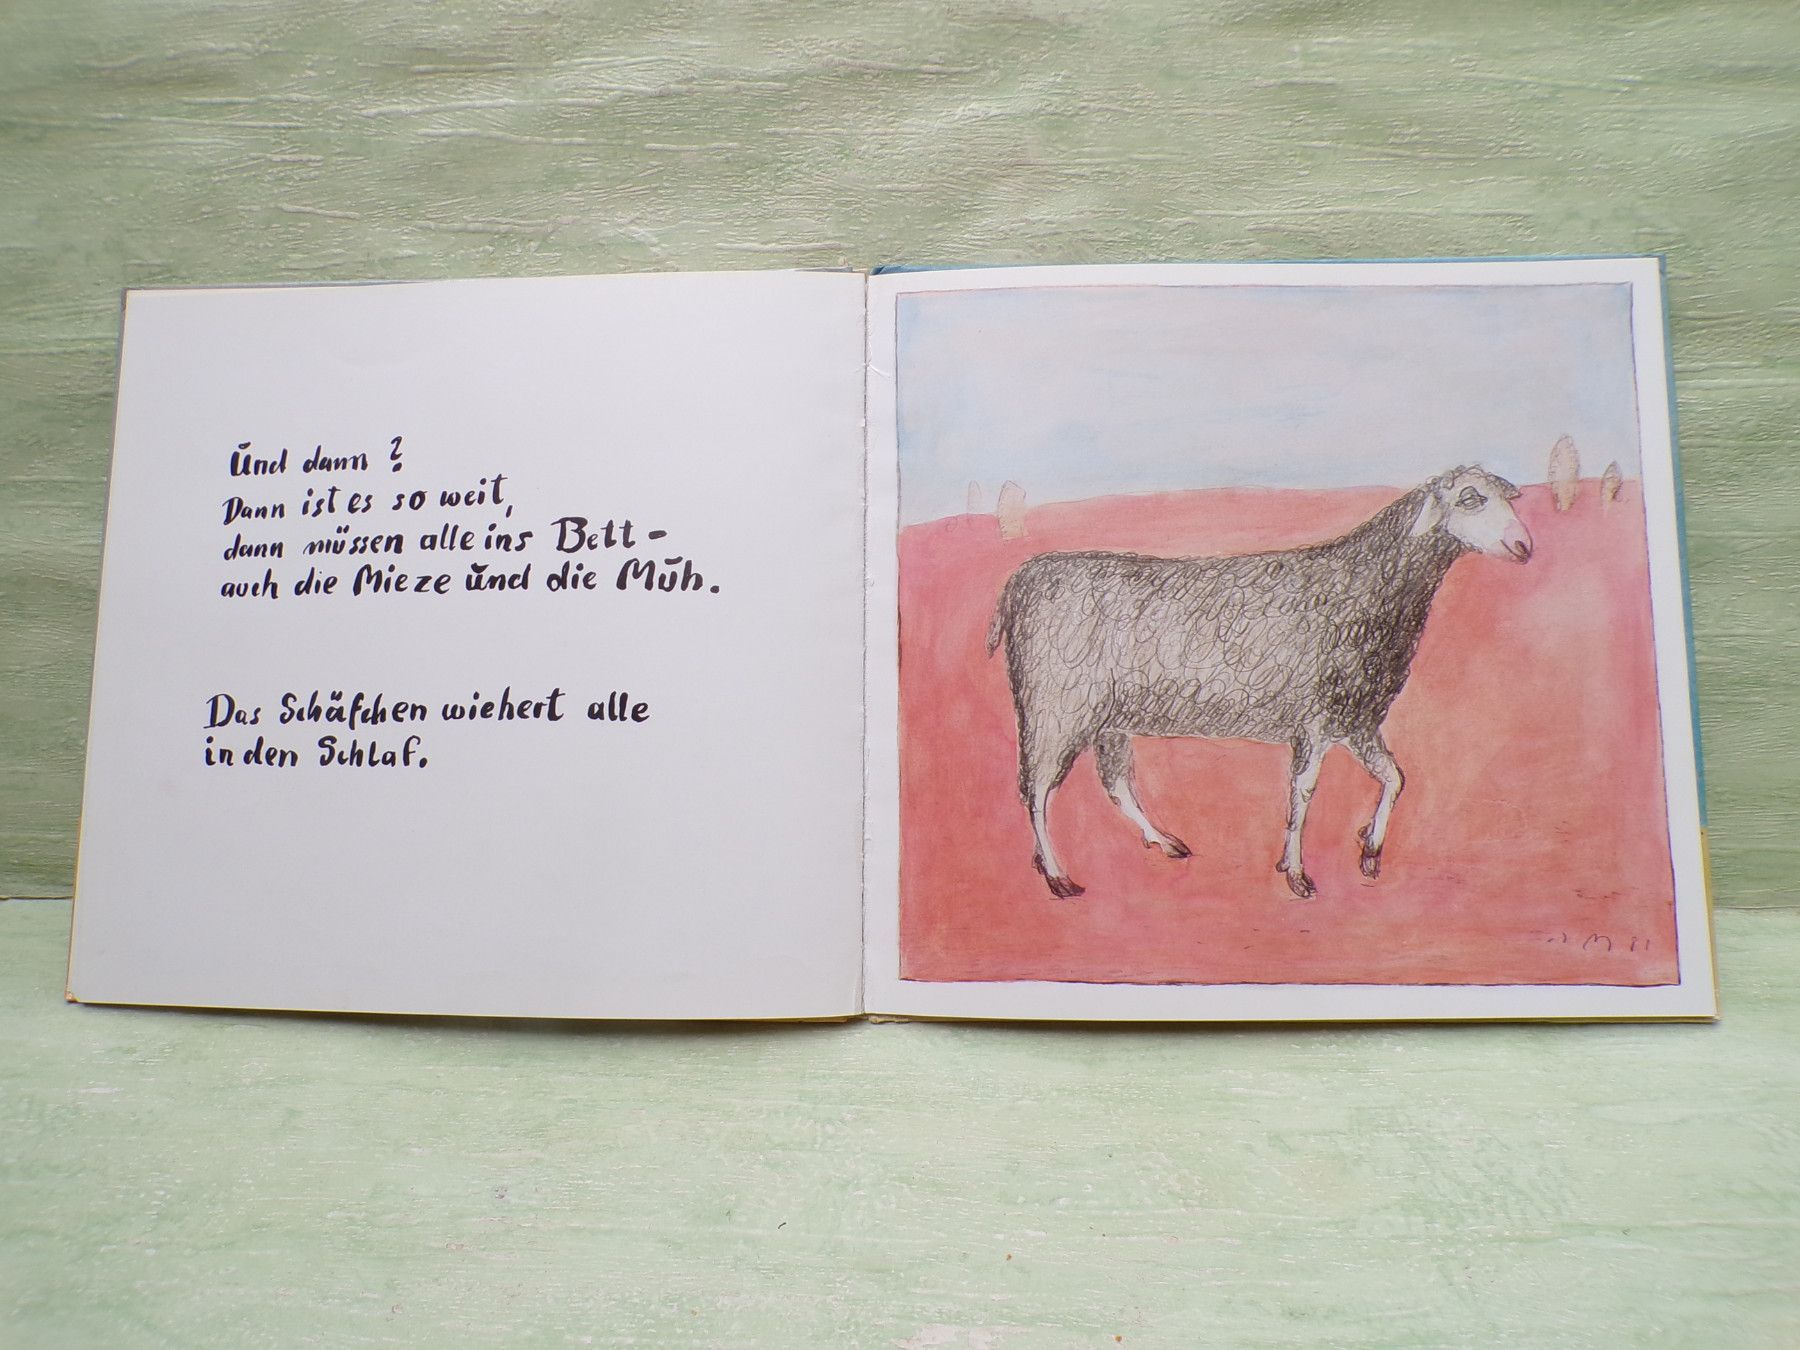 Und dann?
Dann ist es so weit,
dann müssen alle ins Bett –
auch die Mieze und die Muh.
Das Schäfchen wiehert alle
in den Schlaf.